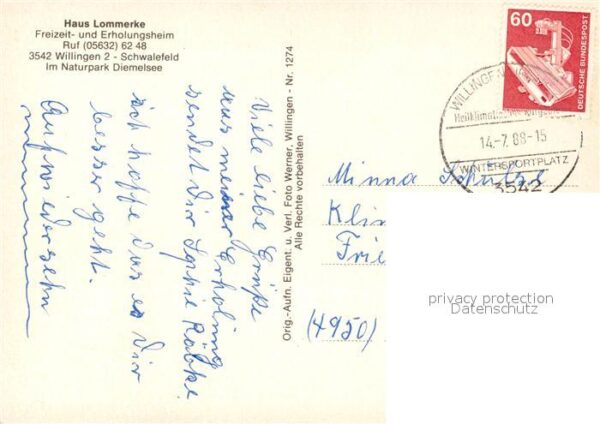 Haus Lommerke
Freizeit- und Erholungsheim
Ruf (05632) 62 48
3542 Willingen 2 - Schwalefeld
Im Naturpark Diemelsee
Viele liebe Grüße
aus meiner Erholung
sendet dir Sophie
ich hoffe das es dir
besser geht.
Auf wiedersehn
Orig.-Aufn. Eigent. u. Verl. Foto Werner, Willingen - Nr. 1274
Alle Rechte vorbehalten
60
DEUTSCHE BUNDESPOST
WILLINGEN
14.-7.88-15
WINTERSPORTPLATZ
3542
Minna
Klin
Frie
(4950)
privacy protection
Datenschutz